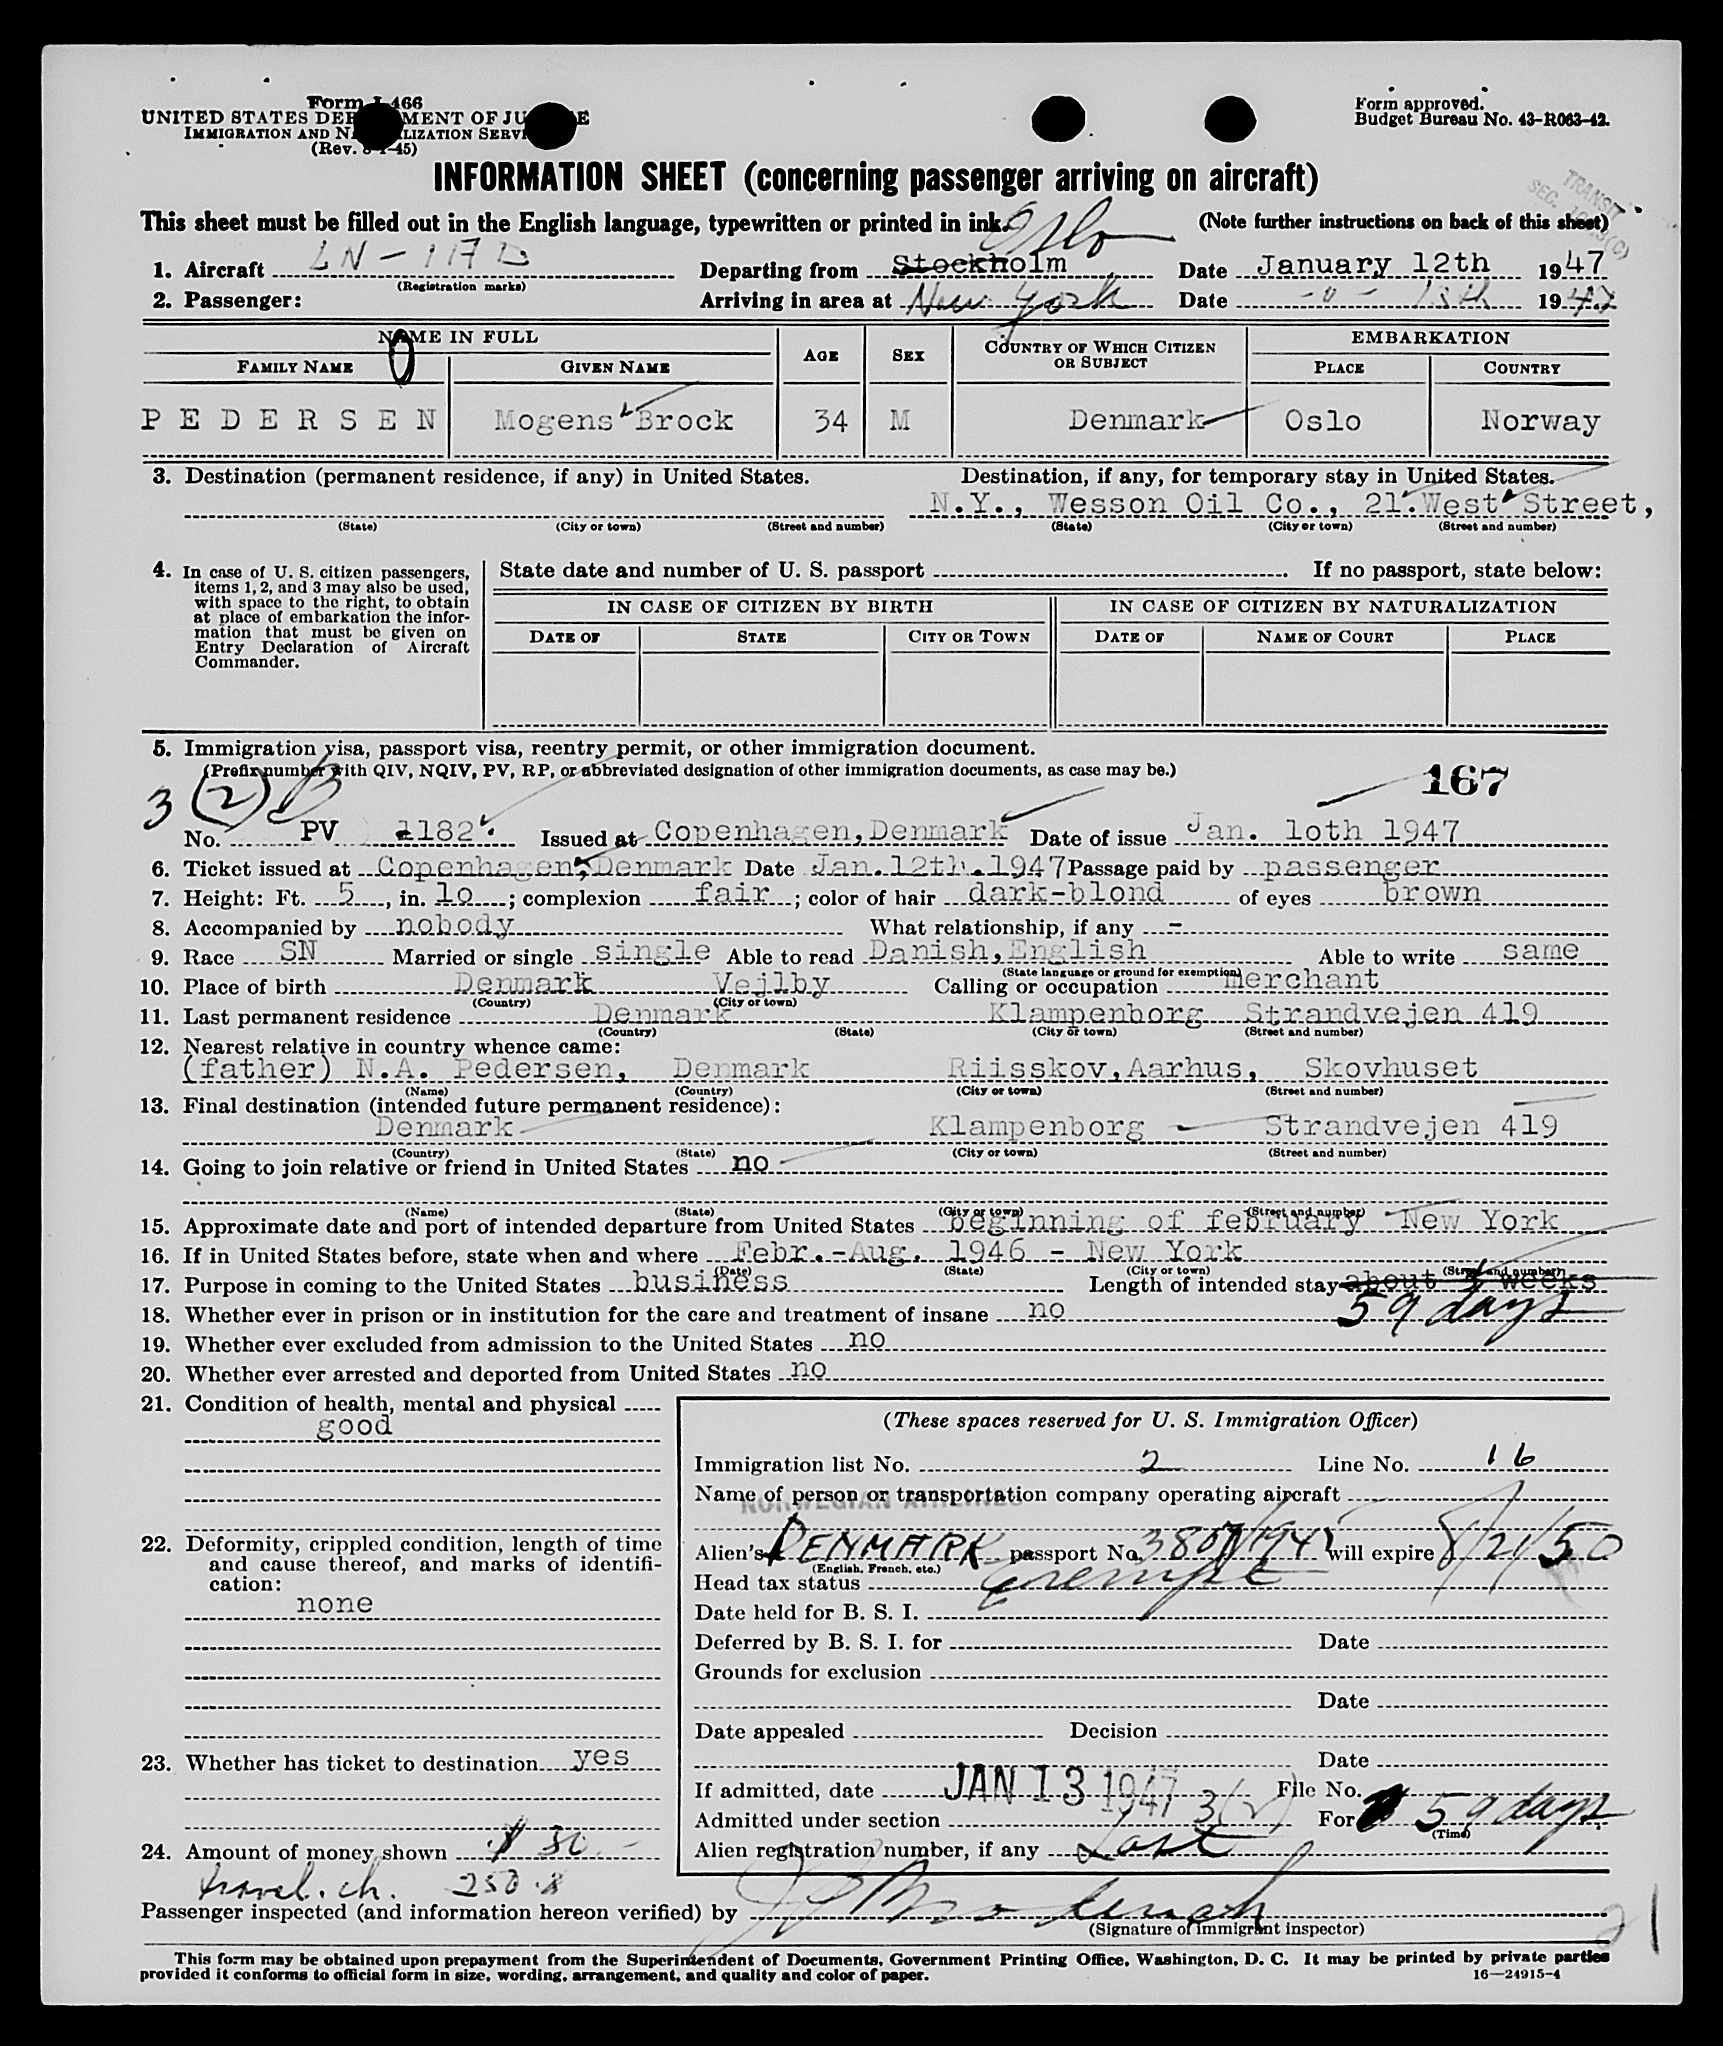 Form I-466
UNITED STATES DEPARTMENT OF JUSTICE
IMMIGRATION AND NATURALIZATION SERVICE
(Rev. 8-1-45)
Form approved.
Budget Bureau No. 43-R063-42.
INFORMATION SHEET (concerning passenger arriving on aircraft)
TRANSIT
SEC.
This sheet must be filled out in the English language, typewritten or printed in ink. (Note further instructions on back of this sheet)
Oslo
1. Aircraft LN- Departing from Stockholm Date January 12th 1947
(Registration marks)
2. Passenger: Arriving in area at New York Date -"- 13th 1947
NAME IN FULL AGE SEX COUNTRY OF WHICH CITIZEN OR SUBJECT EMBARKATION
FAMILY NAME GIVEN NAME PLACE COUNTRY
PEDERSEN Mogens Brock 34 M Denmark Oslo Norway
3. Destination (permanent residence, if any) in United States. Destination, if any, for temporary stay in United States.
N.Y., Wesson Oil Co., 21.West Street,
(State) (City or town) (Street and number) (State) (City or town) (Street and number)
4. In case of U. S. citizen passengers, items 1, 2, and 3 may also be used, with space to the right, to obtain at place of embarkation the information that must be given on Entry Declaration of Aircraft Commander.
State date and number of U. S. passport. If no passport, state below:
IN CASE OF CITIZEN BY BIRTH IN CASE OF CITIZEN BY NATURALIZATION
DATE OF STATE CITY OR TOWN DATE OF NAME OF COURT PLACE
5. Immigration visa, passport visa, reentry permit, or other immigration document.
(Prefix number with QIV, NQIV, PV, RP, or abbreviated designation of other immigration documents, as case may be.)
167
3 (2) B
No. PV 1182. Issued at Copenhagen, Denmark Date of issue Jan. 1oth 1947
6. Ticket issued at Copenhagen, Denmark Date Jan.12th.1947 Passage paid by passenger
7. Height: Ft. 5, in. 1o; complexion fair; color of hair dark-blond of eyes brown
8. Accompanied by nobody What relationship, if any -
9. Race SN Married or single single Able to read Danish, English Able to write same
(State language or ground for exemption)
10. Place of birth Denmark Vejlby Calling or occupation merchant
(Country) (City or town)
11. Last permanent residence Denmark Klampenborg Strandvejen 419
(Country) (State) (City or town) (Street and number)
12. Nearest relative in country whence came:
(father) N.A. Pedersen, Denmark Riisskov, Aarhus, Skovhuset
(Name) (Country) (City or town) (Street and number)
13. Final destination (intended future permanent residence):
Denmark Klampenborg Strandvejen 419
(Country) (State) (City or town) (Street and number)
14. Going to join relative or friend in United States no
(Name) (State) (City or town) (Street and number)
15. Approximate date and port of intended departure from United States beginning of february New York
16. If in United States before, state when and where Febr.-Aug. 1946 - New York
(Date) (State) (City or town) (Street and number)
17. Purpose in coming to the United States business Length of intended stay about 3 weeks
59 days
18. Whether ever in prison or in institution for the care and treatment of insane no
19. Whether ever excluded from admission to the United States no
20. Whether ever arrested and deported from United States no
21. Condition of health, mental and physical
good
22. Deformity, crippled condition, length of time and cause thereof, and marks of identification:
none
23. Whether has ticket to destination yes
24. Amount of money shown $ 50.-
travel. ch. 250.$
(These spaces reserved for U. S. Immigration Officer)
Immigration list No. 2 Line No. 16
Name of person or transportation company operating aircraft
NORWEGIAN AIRLINES
Alien's DENMARK passport No. will expire 8/21/50
(English, French, etc.)
Head tax status exempt
Date held for B. S. I.
Deferred by B. S. I. for Date
Grounds for exclusion
Date
Date appealed Decision
Date
If admitted, date JAN 13 1947 File No.
Admitted under section 3(2) For 59 days
(Time)
Alien registration number, if any Last
Passenger inspected (and information hereon verified) by
(Signature of immigrant inspector)
21
This form may be obtained upon prepayment from the Superintendent of Documents, Government Printing Office, Washington, D. C. It may be printed by private parties
provided it conforms to official form in size, wording, arrangement, and quality and color of paper.
16—24915-4